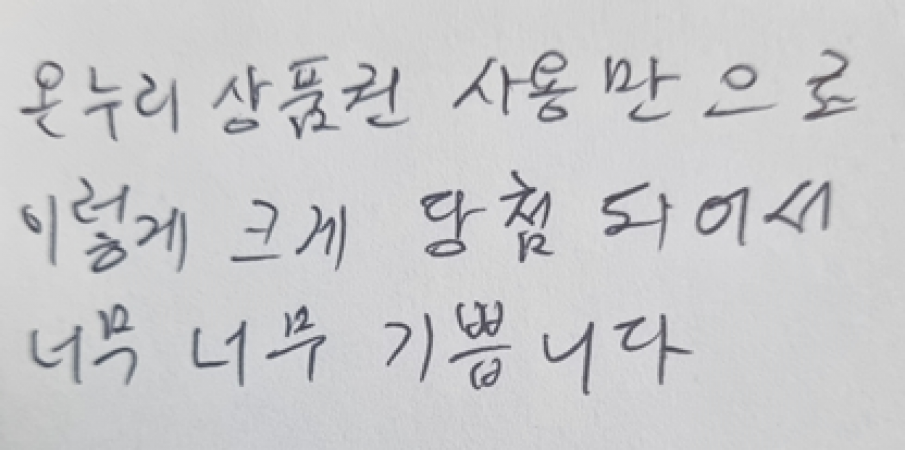 온누리 상품권 사용만으로
이렇게 크게 당첨 되어서
너무 너무 기쁩니다